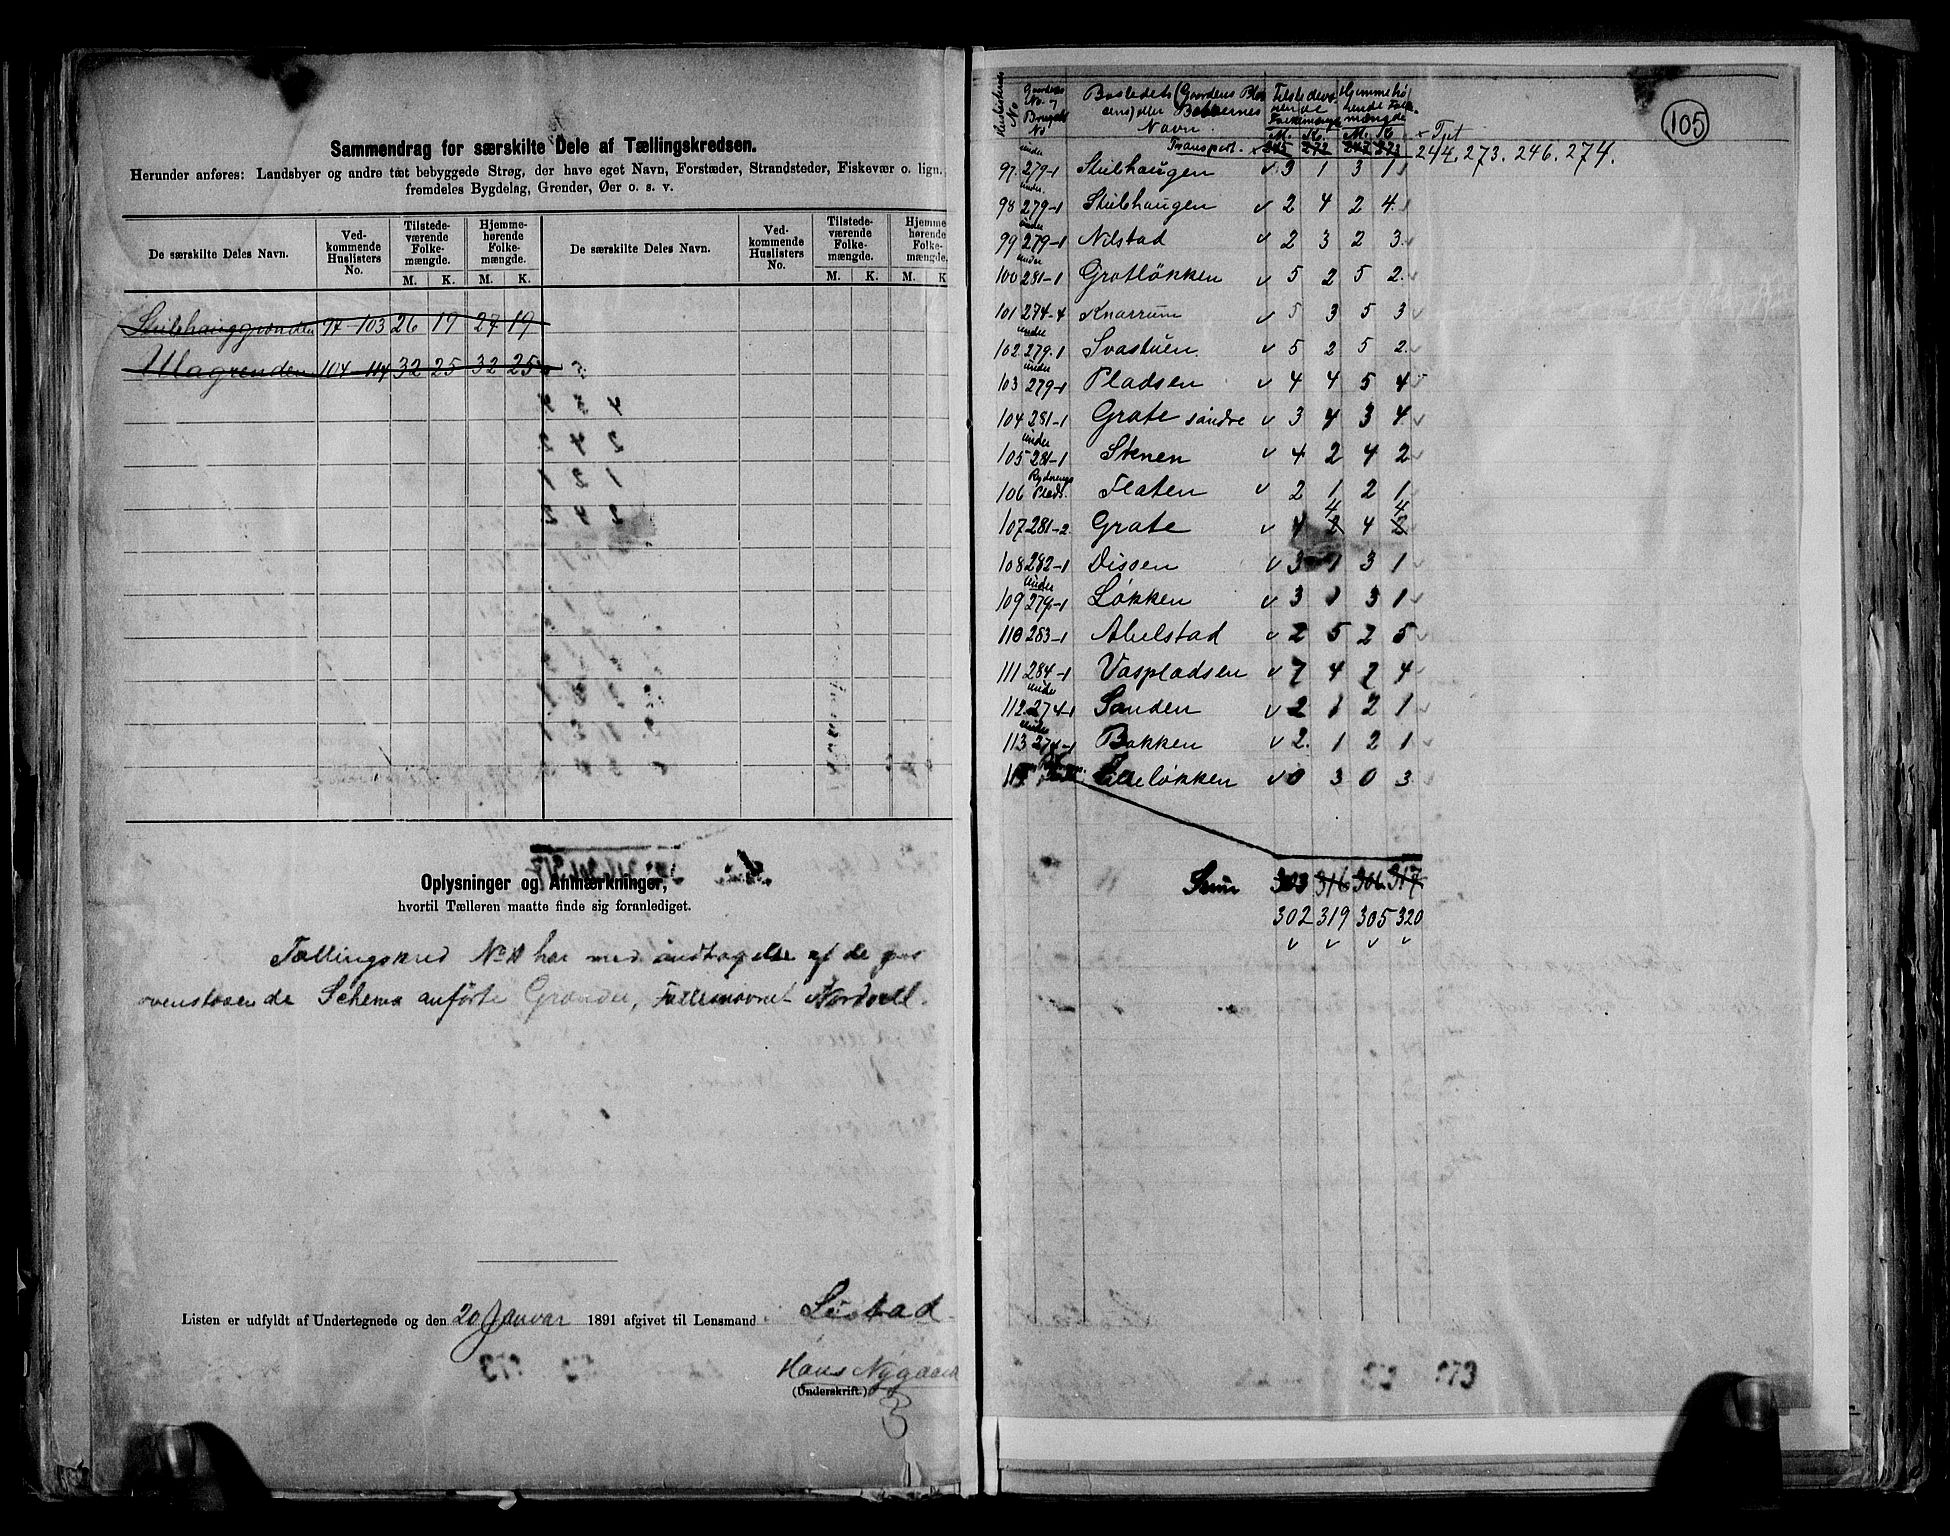 Sammendrag for særskilte Dele af Tællingskredsen.
Herunder anføres: Landsbyer og andre tæt bebyggede Strøg, der have eget Navn, Forstæder, Strandsteder, Fiskevær o. lign.
fremdeles Bygdelag, Grender, Øer o. s. v.
De særskilte Deles Navn. Ved-kommende Huslisters No. Tilstede-værende Folke-mængde. Hjemme-hørende Folke-mængde. De særskilte Deles Navn. Ved-kommende Huslisters No. Tilstede-værende Folke-mængde. Hjemme hørende Folke-mængde.
M. K. M. K. M. K. M. K
Stubhauggrenden 97-103 26 19 27 19
Ulagrenden 104-114 32 25 32 25
Oplysninger og Anmærkninger,
hvortil Tælleren maatte finde sig foranlediget.
Tællingskred No 11 har med undtagelse af de paa
ovenstaaende Schema anførte Grender, Fællesnavnet Nordvell.
Listen er udfyldt af Undertegnede og den 20 Januar 1891 afgivet til Lensmand Listad
Hans Nygaard
(Underskrift.)
105
Huslisternes No Gaardens No. og Brugets No Bostedets (Gaardens Pladsens) eller Beboernes Navn. Tilstedeværende Folkemængde Hjemmehørende Folkemængde
M. K. M. K. x Tpt
Transport. x 245 272 247 273 244. 273. 246. 274.
97. under 279-1 Stubhaugen v 3 1 3 1
98 under 279-1 Stubhaugen v 2 4 2 4
99 under 279-1 Nilstad v 2 3 2 3
100 under 281-1 Grotløkken v 5 2 5 2
101 274-4 Knarrum v 5 3 5 3
102 under 279.1 Svastuen v 5 2 5 2
103 under 279-1 Pladsen v 4 4 5 4
104 281-1 Grate søndre v 3 4 3 4
105 under 281-1 Stenen v 4 2 4 2
106 Plads. Flaten v 2 1 2 1
4 4
107 281-2 Grate v 4 2 4 2
108 282-1 Vissen v 3 1 3 1
109 under 279-1 Løkken v 3 1 3 1
110 283-1 Abelstad v 2 5 2 5
111 284-1 Vaspladsen v 7 4 7 4
112 under 274-1 Sanden v 2 1 2 1
113 under 274-1 Bakken v 2 1 2 1
114 Lilleløkken v 0 3 0 3
Sum 303 316 306 317
302 319 305 320
v v v v